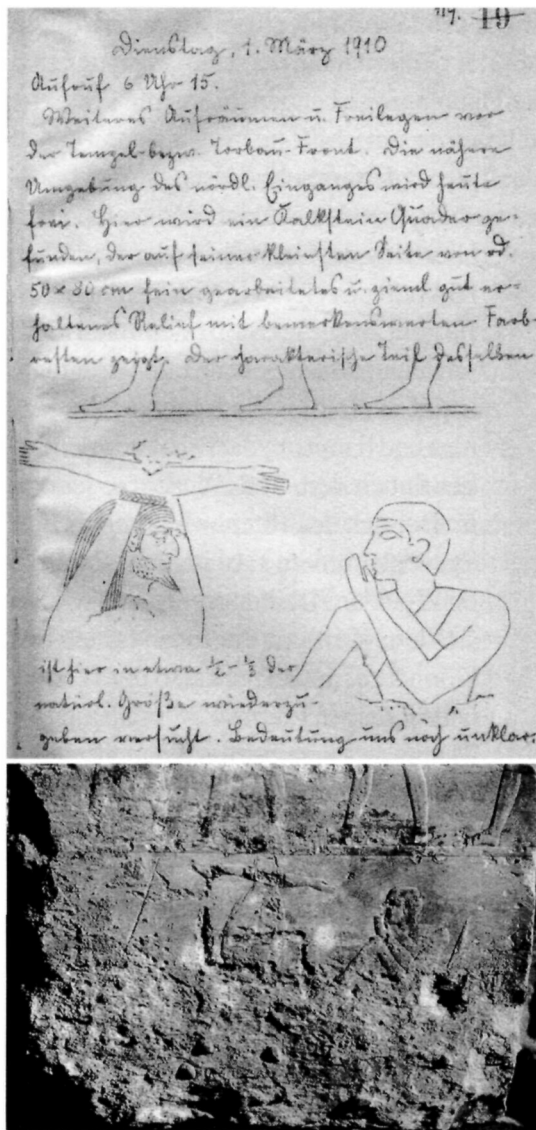 19
Dienstag, 1. März 1910
Aufruf 6 Uhr 15.
Weiteres Aufräumen u. Freilegen vor
der Tempel- bezw. Torbau-Front. Die nähere
Umgebung des nördl. Einganges wird heute
frei. Hier wird ein Kalkstein Quader ge-
funden, der auf seiner kleinsten Seite von rd.
50 × 80 cm fein gearbeitetes u. zieml. gut er-
haltenes Relief mit bemerkenswerten Farb-
resten zeigt. Der charakterische Teil desselben
ist hier in etwa ½ - ⅓ der
natürl. Größe wiederzu-
geben versucht. Bedeutung uns noch unklar.